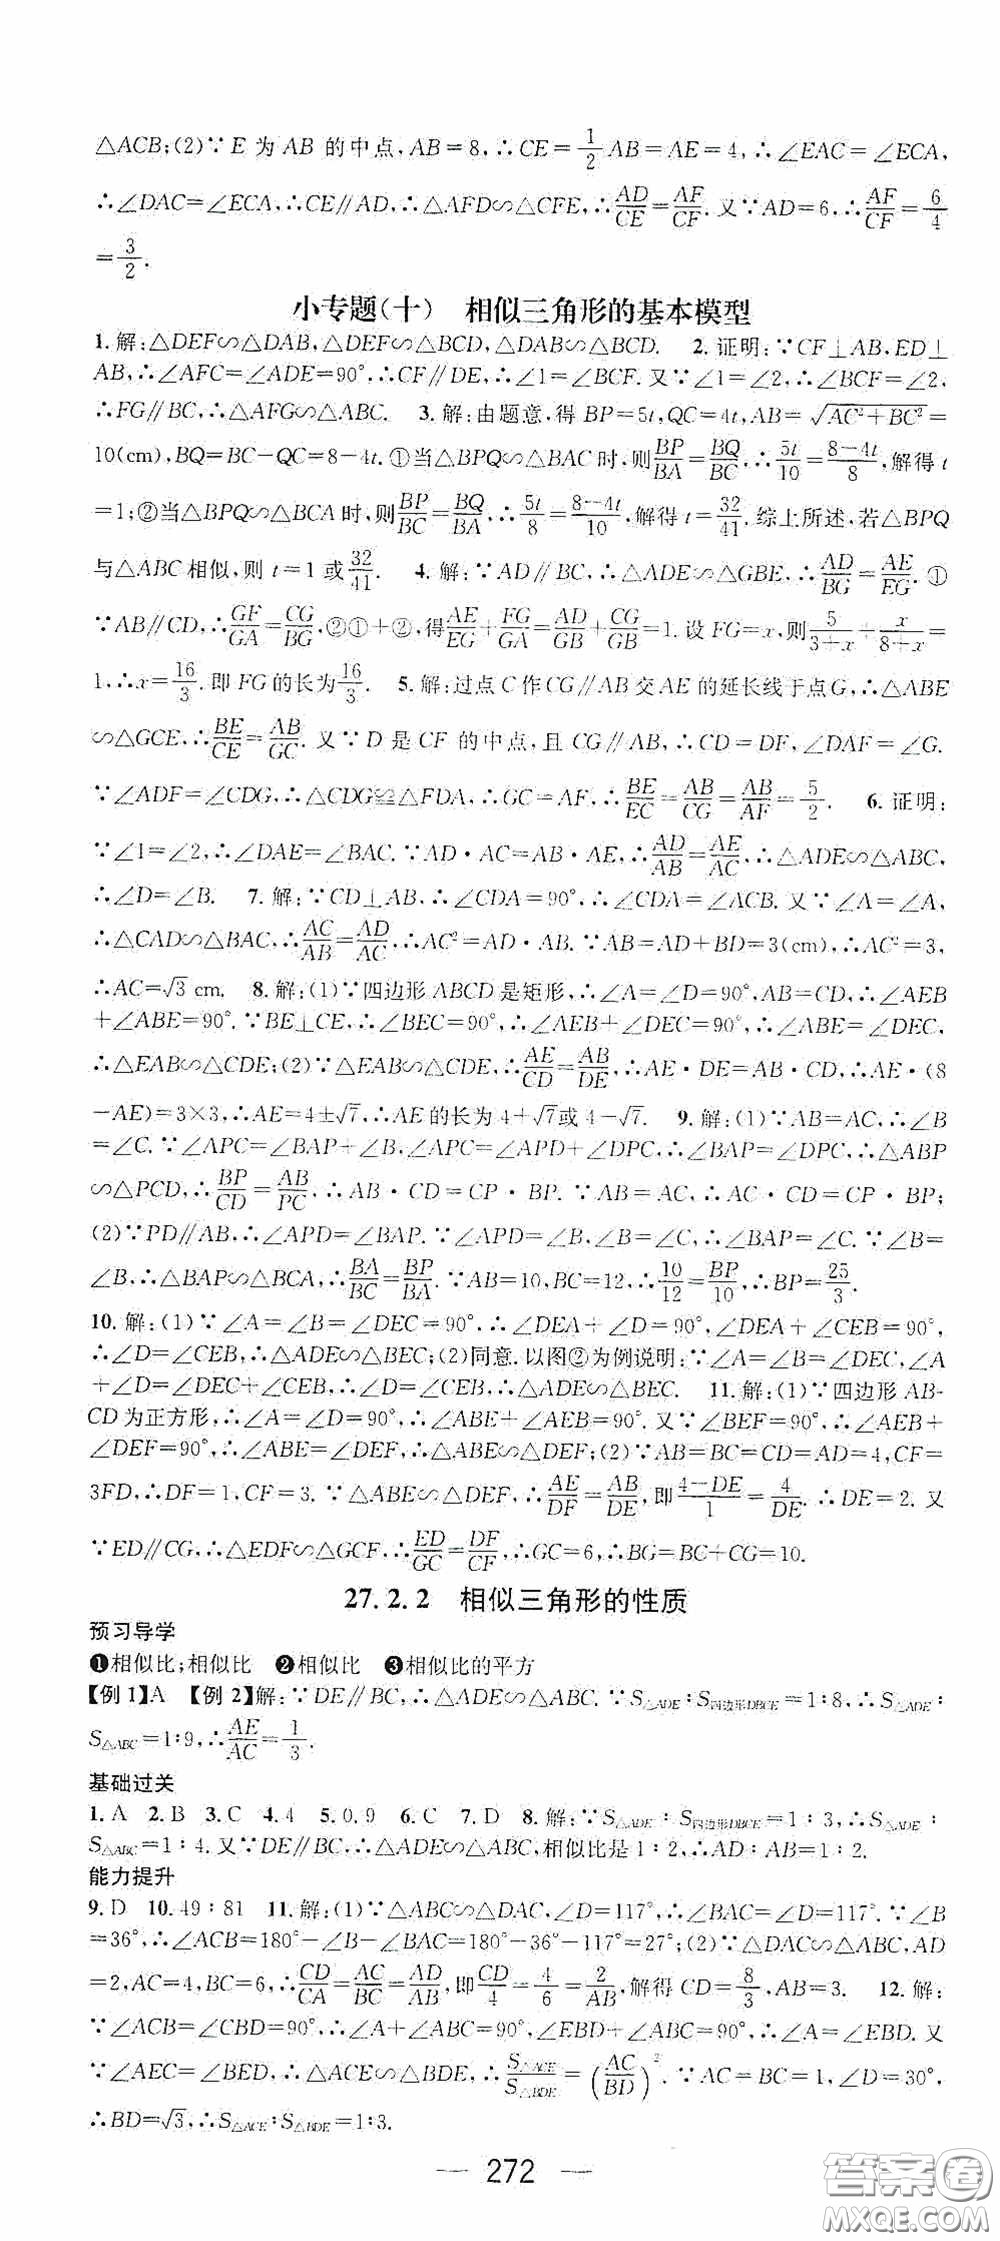 △ACB;(2)∵E 为 AB 的中点,AB=8,∴CE=1/2 AB=AE=4,∴∠EAC=∠ECA,
∴∠DAC=∠ECA,∴CE∥AD,∴△AFD∽△CFE,∴AD/CE=AF/CF.又∵AD=6,∴AF/CF=6/4
=3/2.
小专题(十) 相似三角形的基本模型
1.解:△DEF∽△DAB,△DEF∽△BCD,△DAB∽△BCD. 2.证明:∵CF⊥AB,ED⊥
AB,∴∠AFC=∠ADE=90°,∴CF∥DE,∴∠1=∠BCF.又∵∠1=∠2,∴∠BCF=∠2,
∴FG∥BC,∴△AFG∽△ABC. 3.解:由题意,得 BP=5t,QC=4t,AB=√(AC²+BC²)=
10(cm),BQ=BC-QC=8-4t.①当△BPQ∽△BAC 时,则BP/BA=BQ/BC,∴5t/10=(8-4t)/8,解得 t
=1;②当△BPQ∽△BCA 时,则BP/BC=BQ/BA,∴5t/8=(8-4t)/10,解得 t=32/41.综上所述,若△BPQ
与△ABC 相似,则 t=1 或32/41. 4.解:∵AD∥BC,∴△ADE∽△GBE,∴AD/BG=AE/EG.①
∵AB∥CD,∴GF/GA=CG/BG,②①+②,得AE/EG+FG/GA=AD/GB+CG/GB=1.设 FG=x,则5/(3+x)+x/(8+x)=
1,∴x=16/3.即 FG 的长为16/3. 5.解:过点 C 作 CG∥AB 交 AE 的延长线于点 G,∴△ABE
∽△GCE,∴BE/CE=AB/GC.又∵D 是 CF 的中点,且 CG∥AB,∴CD=DF,∠DAF=∠G.
∵∠ADF=∠CDG,∴△CDG≌△FDA,∴GC=AF,∴BE/EC=AB/CG=AB/AF=5/2. 6.证明:
∵∠1=∠2,∴∠DAE=∠BAC.∵AD·AC=AB·AE,∴AD/AB=AE/AC,∴△ADE∽△ABC,
∴∠D=∠B. 7.解:∵CD⊥AB,∴∠CDA=90°,∴∠CDA=∠ACB.又∵∠A=∠A,
∴△CAD∽△BAC,∴AC/AB=AD/AC,∴AC²=AD·AB.∵AB=AD+BD=3(cm),∴AC²=3,
∴AC=√3 cm. 8.解:(1)∵四边形 ABCD 是矩形,∴∠A=∠D=90°,AB=CD,∴∠AEB
+∠ABE=90°.∵BE⊥CE,∴∠BEC=90°,∴∠AEB+∠DEC=90°,∴∠ABE=∠DEC,
∴△EAB∽△CDE;(2)∵△EAB∽△CDE,∴AE/CD=AB/DE,∴AE·DE=AB·CD,∴AE·(8
-AE)=3×3,∴AE=4±√7,∴AE 的长为 4+√7或 4-√7. 9.解:(1)∵AB=AC,∴∠B
=∠C.∵∠APC=∠BAP+∠B,∠APC=∠APD+∠DPC,∴∠BAP=∠DPC,∴△ABP
∽△PCD,∴BP/CD=AB/PC,∴AB·CD=CP·BP.∵AB=AC,∴AC·CD=CP·BP;
(2)∵PD∥AB,∴∠APD=∠BAP.∵∠APD=∠B,∠B=∠C,∴∠BAP=∠C.∵∠B=
∠B,∴△BAP∽△BCA,∴BA/BC=BP/BA.∵AB=10,BC=12,∴10/12=BP/10,∴BP=25/3.
10.解:(1)∵∠A=∠B=∠DEC=90°,∴∠DEA+∠D=90°,∠DEA+∠CEB=90°,
∴∠D=∠CEB,∴△ADE∽△BEC;(2)同意.以图②为例说明:∵∠A=∠B=∠DEC,∠A
+∠D=∠DEC+∠CEB,∴∠D=∠CEB,∴△ADE∽△BEC. 11.解:(1)∵四边形 AB-
CD 为正方形,∴∠A=∠D=90°,∴∠ABE+∠AEB=90°.又∵∠BEF=90°,∴∠AEB+
∠DEF=90°,∴∠ABE=∠DEF,∴△ABE∽△DEF;(2)∵AB=BC=CD=AD=4,CF=
3FD,∴DF=1,CF=3.∵△ABE∽△DEF,∴AE/DF=AB/DE,即(4-DE)/1=4/DE.∴DE=2.又
∵ED∥CG,∴△EDF∽△GCF,∴ED/GC=DF/CF,∴GC=6,∴BG=BC+CG=10.
27.2.2 相似三角形的性质
预习导学
❶相似比;相似比 ❷相似比 ❸相似比的平方
【例1】A 【例2】解:∵DE∥BC,∴△ADE∽△ABC.∵S△ADE:S四边形DBCE=1:8,∴S△ADE:
S△ABC=1:9,∴AE/AC=1/3.
基础过关
1.A 2.B 3.C 4.4 5.0.9 6.C 7.D 8.解:∵S△ADE:S四边形DBCE=1:3,∴S△ADE:
S△ABC=1:4.又∵DE∥BC,∴△ADE∽△ABC,相似比是 1:2,∴AD:AB=1:2.
能力提升
9.D 10.49:81 11.解:(1)∵△ABC∽△DAC,∠D=117°,∴∠BAC=∠D=117°.∵∠B
=36°,∴∠ACB=180°-∠B-∠BAC=180°-36°-117°=27°;(2)∵△DAC∽△ABC,AD
=2,AC=4,BC=6,∴CD/CA=AC/BC=AD/AB,即CD/4=4/6=2/AB,解得 CD=8/3,AB=3. 12.解:
∵∠ACB=∠CBD=90°,∴∠A+∠ABC=90°,∠EBD+∠ABC=90°,∴∠A=∠EBD.又
∵∠AEC=∠BED,∴△ACE∽△BDE,∴S△ACE/S△BDE=(AC/BD)².∵AC=BC=1,∠D=30°,
∴BD=√3,∴S△ACE:S△BDE=1:3.
— 272 —
答案圈
MXQE.COM